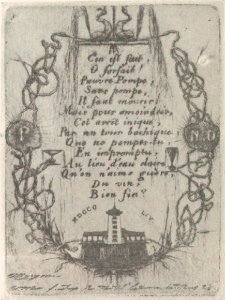 C'en est fait,
O forfait!
Pauvre Pompe,
Sans pompe,
Il faut mourir:
Mais pour amoindrir,
Cet arrêt inique,
Par un tour bachique,
Que ne pompes-tu,
En impromptu,
Au lieu d'eau claire,
Qu'on n'aime guère,
Du vin?
Bien fin?
MDCCC LV